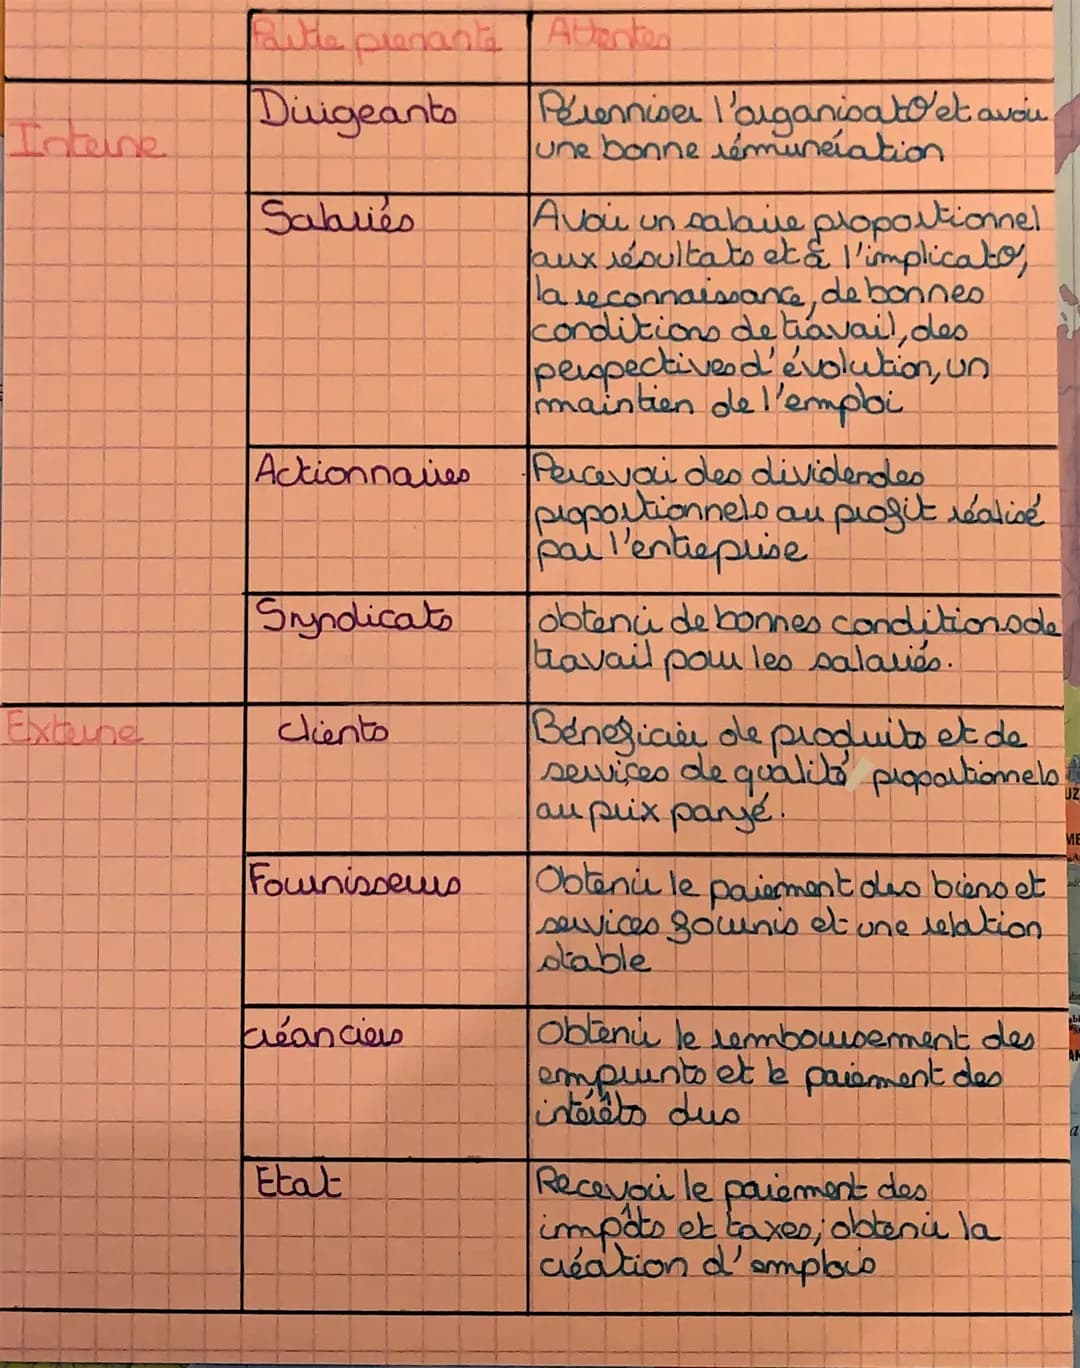 Partie prenante Attentes
Interne
Dirigeants
Pérenniser l'organisat° et avoir
une bonne rémunération
Salariés
Avoir un salaire proportionnel
aux résultats et à l'implicat°,
la reconnaissance, de bonnes
conditions de travail, des
perspectives d'évolution, un
maintien de l'emploi
Actionnaires
Percevoir des dividendes
proportionnels au profit réalisé
par l'entreprise
Syndicats
obtenir de bonnes conditions de
travail pour les salariés.
Externe
clients
Bénéficier de produits et de
services de qualité proportionnels
au prix payé.
Fournisseurs
Obtenir le paiement des biens et
services fournis et une relation
stable
créanciers
Obtenir le remboursement des
emprunts et le paiement des
intérêts dus
Etat
Recevoir le paiement des
impôts et taxes; obtenir la
création d'emplois